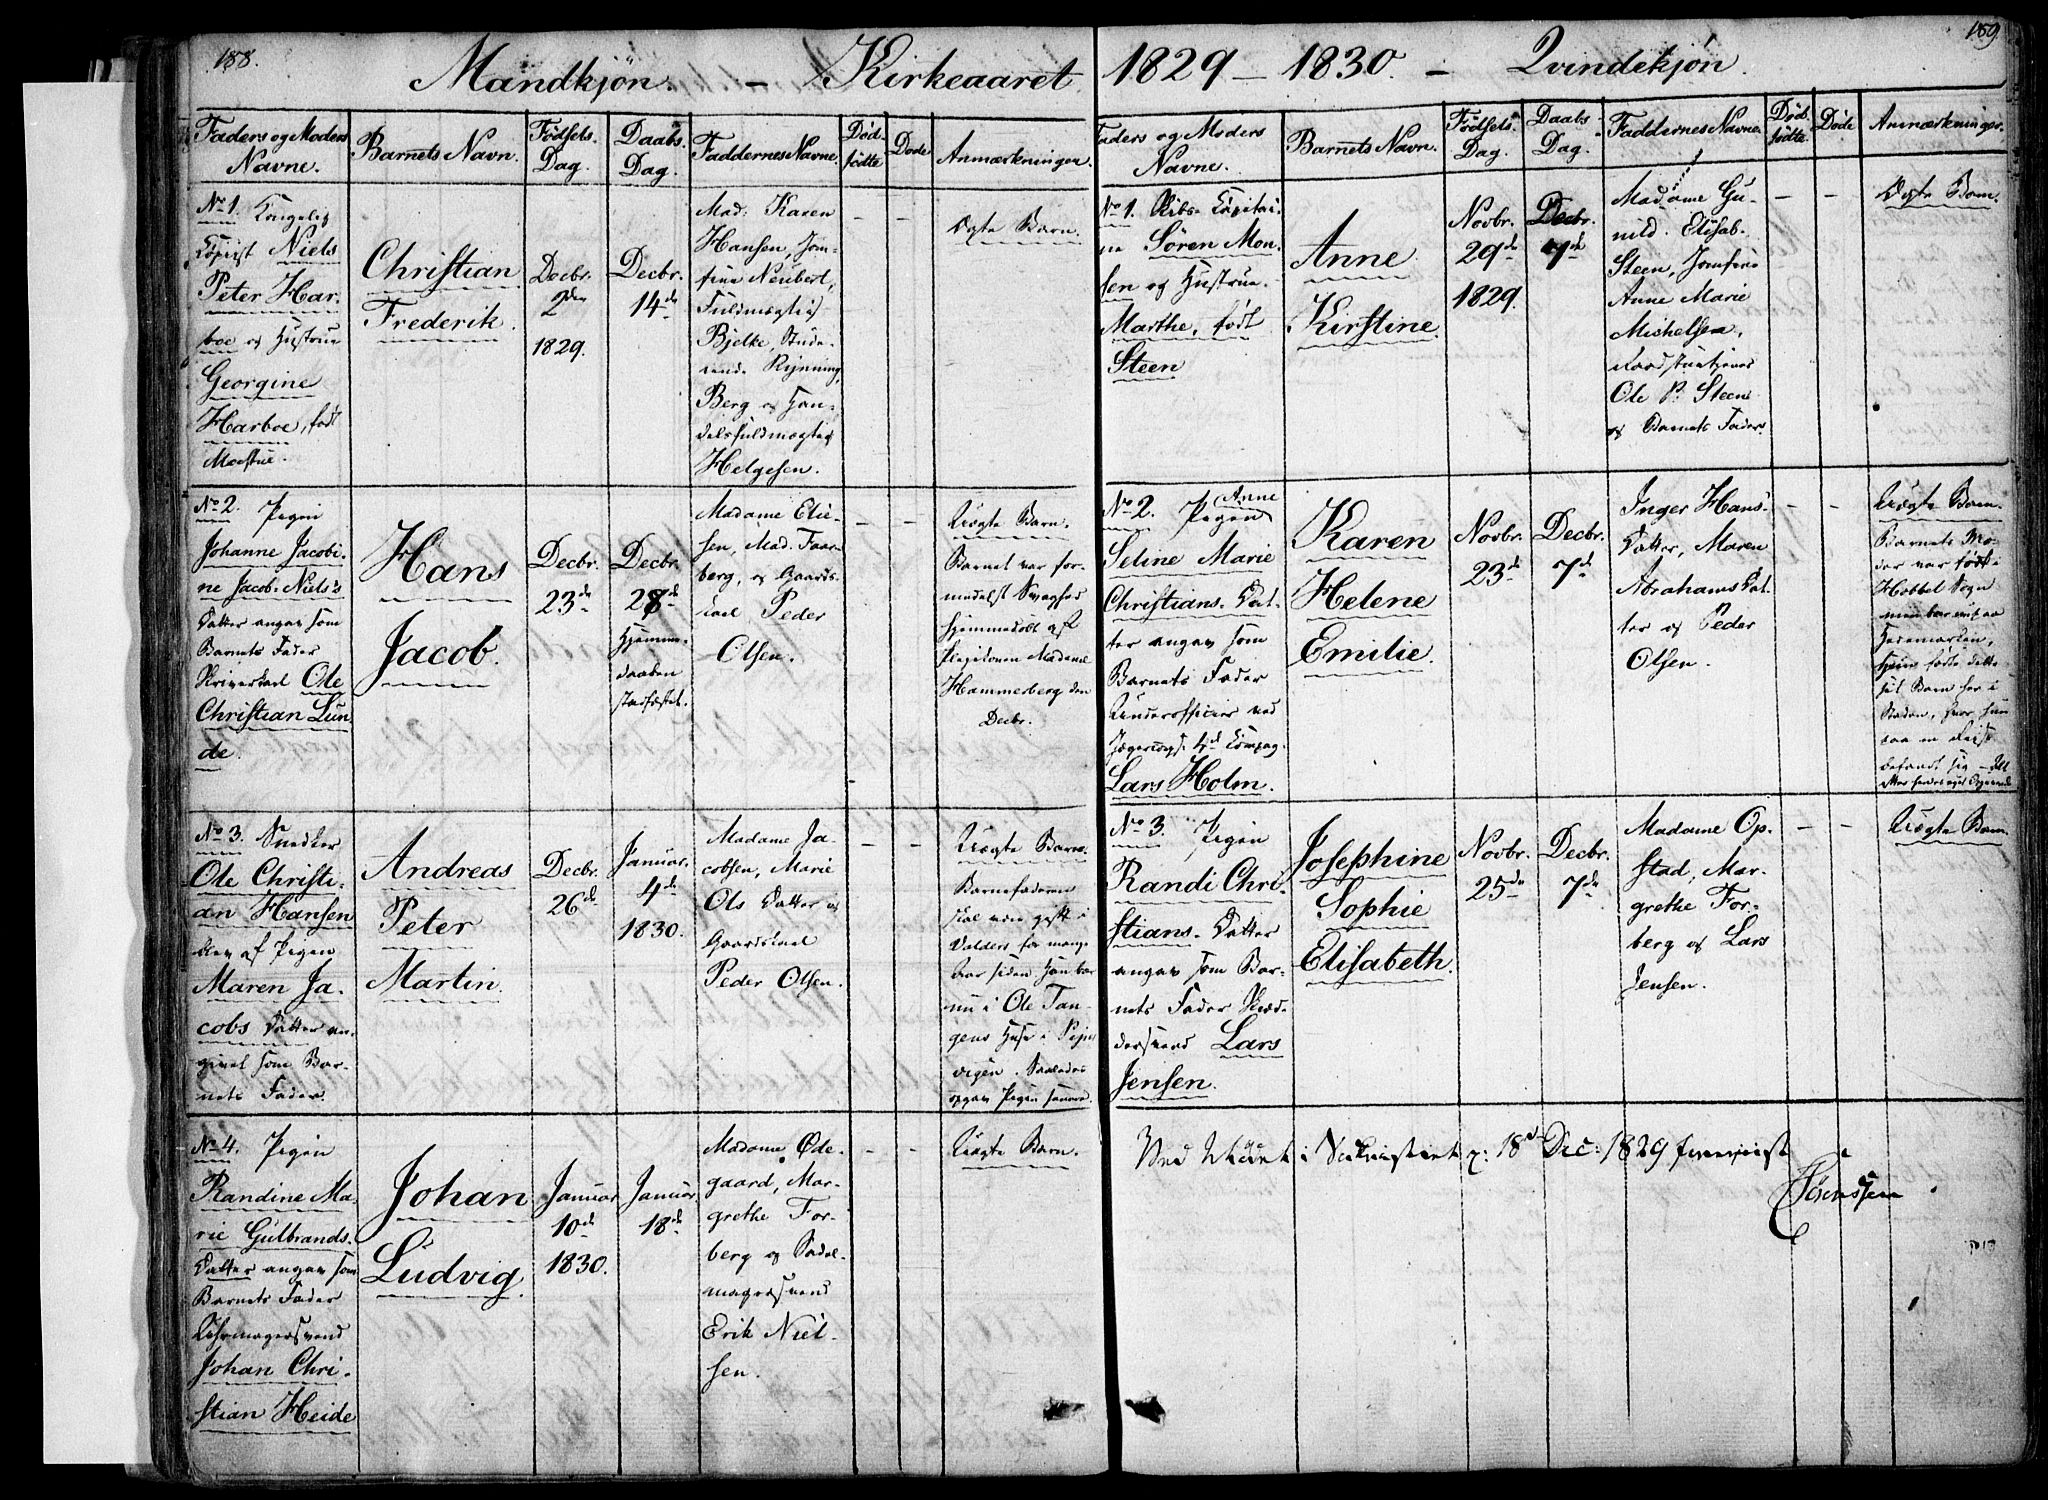 188.
Mandkjøn. – Kirkeaaret
Faders og Moders Navne.
Barnets Navn.
Fødsels Dag.
Daabs Dag.
Faddernes Navne.
Død-fødte
Døde
Anmærkninger.
No 1. Kongelig
Copiist Niels
Peter Har-
boe og Hustrue
Georgine
Harboe, født
Moestue.
Christian
Frederik.
Decbr.
2den
1829.
Decbr.
14de
Mad. Karen
Hansen, Jom-
frue Neubert,
Fuldmægtig
Bjelke, Stude-
rende Rynning,
Berg og Han-
delsfuldmægtig
Helgesen.
– –
Ægte Barn.
No 2. Pigen
Johanne Jacobi-
ne Jacob-Niels's
Datter angav som
Barnets Fader
Skriverkarl Ole
Christian Lun-
de.
Hans
Jacob.
Decbr.
23de
Decbr.
28de
Hjemme-
daaben
stadfæstet.
Madame Elie-
sen, Mad. Faar-
berg, og Gaards-
karl Peder
Olsen.
– –
Uægte Barn.
Barnet var for-
medelst Svaghed
hjemmedøbt af
Madame
Hammerberg den
Decbr.
No 3. Snedker
Ole Christi-
an Hansen
blev af Pigen
Maren Ja-
cobs Datter an-
givet som Bar-
nets Fader.
Andreas
Peter
Martin.
Decbr.
26de
Januar.
4de
1830.
Madame Ja-
cobsen, Marie
Ols Datter og
Gaardskarl
Peder Olsen.
– –
Uægte Barn.
Barnefaderen
skal være gift i
Valders for mange
Aar siden. Han bor
nu i Ole Tan-
gens Huse i Piper-
vigen. Saaledes
opgav Pigen
No 4. Pigen
Randine Ma-
rie Gulbrands-
Datter angav som
Barnets Fader
Uhrmagersvend
Johan Chri-
stian Heide
Johan
Ludvig.
Januar
10de
1830.
Januar.
18de
Madame Øde-
gaard, Mar-
grethe For-
berg og Sadel-
magersvend
Erik Niel-
sen.
– –
Uægte Barn.
189
1829 – 1830. – Qvindekjøn.
Faders og Moders Navne.
Barnets Navn.
Fødsels. Dag.
Daabs Dag.
Faddernes Navne.
Død-fødte.
Døde
Anmærkninger.
No 1. Skibs-Capitai-
ne Søren Mon-
sen og Hustrue
Marthe, født
Steen
Anne
Kirstine.
Novbr.
29de
1829.
Decbr.
7de
Madame Gu-
nild Elisab.
Steen, Jomfrue
Anne Marie
Michelsen,
Ole P. Steen
og Barnets Fader.
– –
Ægte Barn.
No 2. Pigen Anne
Seline Marie
Christians-Dat-
ter angav som
Barnets Fader
Underofficier ved
Jægercorps. 4de Compag.
Lars Holm.
Karen
Helene
Emilie.
Novbr.
23de
Decbr.
7de
Inger Hans-
Datter, Maren
Abrahams Dat-
ter og Peder
Olsen.
– –
Uægte Barn.
Barnets Mo-
der var født i
Hobbel Sogn
Hedemarken,
fødte dette
sit Barn her i
Staden, hvor hun
paa en Reise
befandt sig –
No 3. Pigen
Randi Chri-
stians-Datter
angav som Bar-
nets Fader Skræd-
dersvend Lars
Jensen.
Josephine
Sophie
Elisabeth.
Novbr.
25de
Decbr.
7de
Madame Op-
stad, Mar-
grethe For-
berg og Lars
Jensen.
– –
Uægte Barn.
Ved i Sacristiet d: 18de Dec: 1829 foreviist
Sörenssen